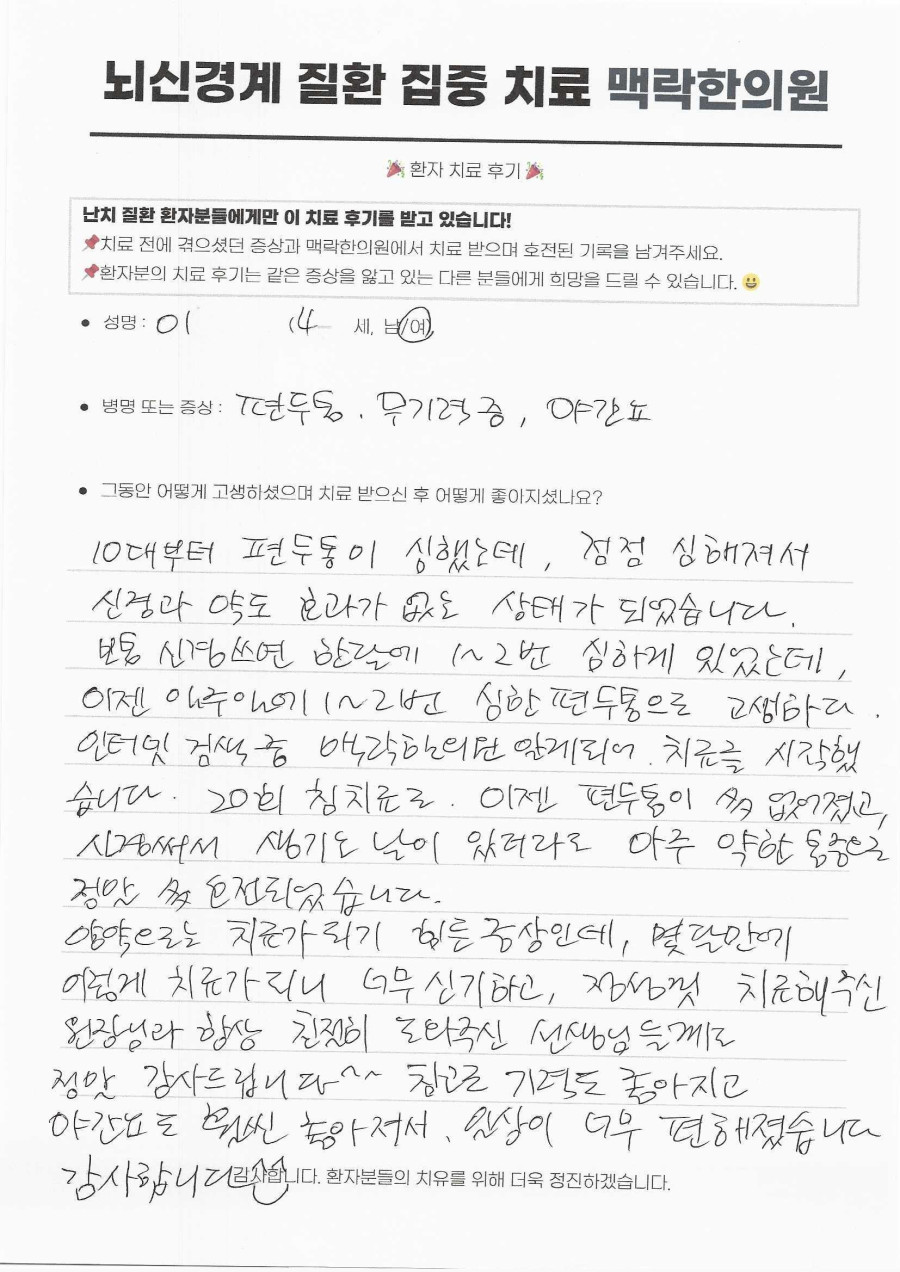 뇌신경계 질환 집중 치료 맥락한의원
🎉 환자 치료 후기 🎉
난치 질환 환자분들에게만 이 치료 후기를 받고 있습니다!
📌치료 전에 겪으셨던 증상과 맥락한의원에서 치료 받으며 호전된 기록을 남겨주세요.
📌환자분의 치료 후기는 같은 증상을 앓고 있는 다른 분들에게 희망을 드릴 수 있습니다. 😀
• 성명 : 이 (4 세, 남/여)
• 병명 또는 증상 : 편두통, 무기력증, 야간뇨
• 그동안 어떻게 고생하셨으며 치료 받으신 후 어떻게 좋아지셨나요?
10대부터 편두통이 심했는데, 점점 심해져서
신경과 약도 효과가 없는 상태가 되었습니다.
보통 신경쓰면 한달에 1~2번 심하게 있었는데,
이젠 일주일에 1~2번 심한 편두통으로 고생하다.
인터넷 검색 중 맥락한의원 알게되어. 치료를 시작했
습니다. 20회 침치료로. 이젠 편두통이 多 없어졌고,
신경써서 생기는 날이 있더라도 아주 약한 통증으로
정말 多 호전되었습니다.
양약으로는 치료가 되기 힘든 증상인데, 몇달만에
이렇게 치료가 되니 너무 신기하고, 정성껏 치료해주신
원장님과 항상 친절히 도와주신 선생님들께도
정말 감사드립니다~~ 참고로 기력도 좋아지고
야간뇨도 훨씬 좋아져서, 일상이 너무 편해졌습니다
감사합니다
감사합니다. 환자분들의 치유를 위해 더욱 정진하겠습니다.